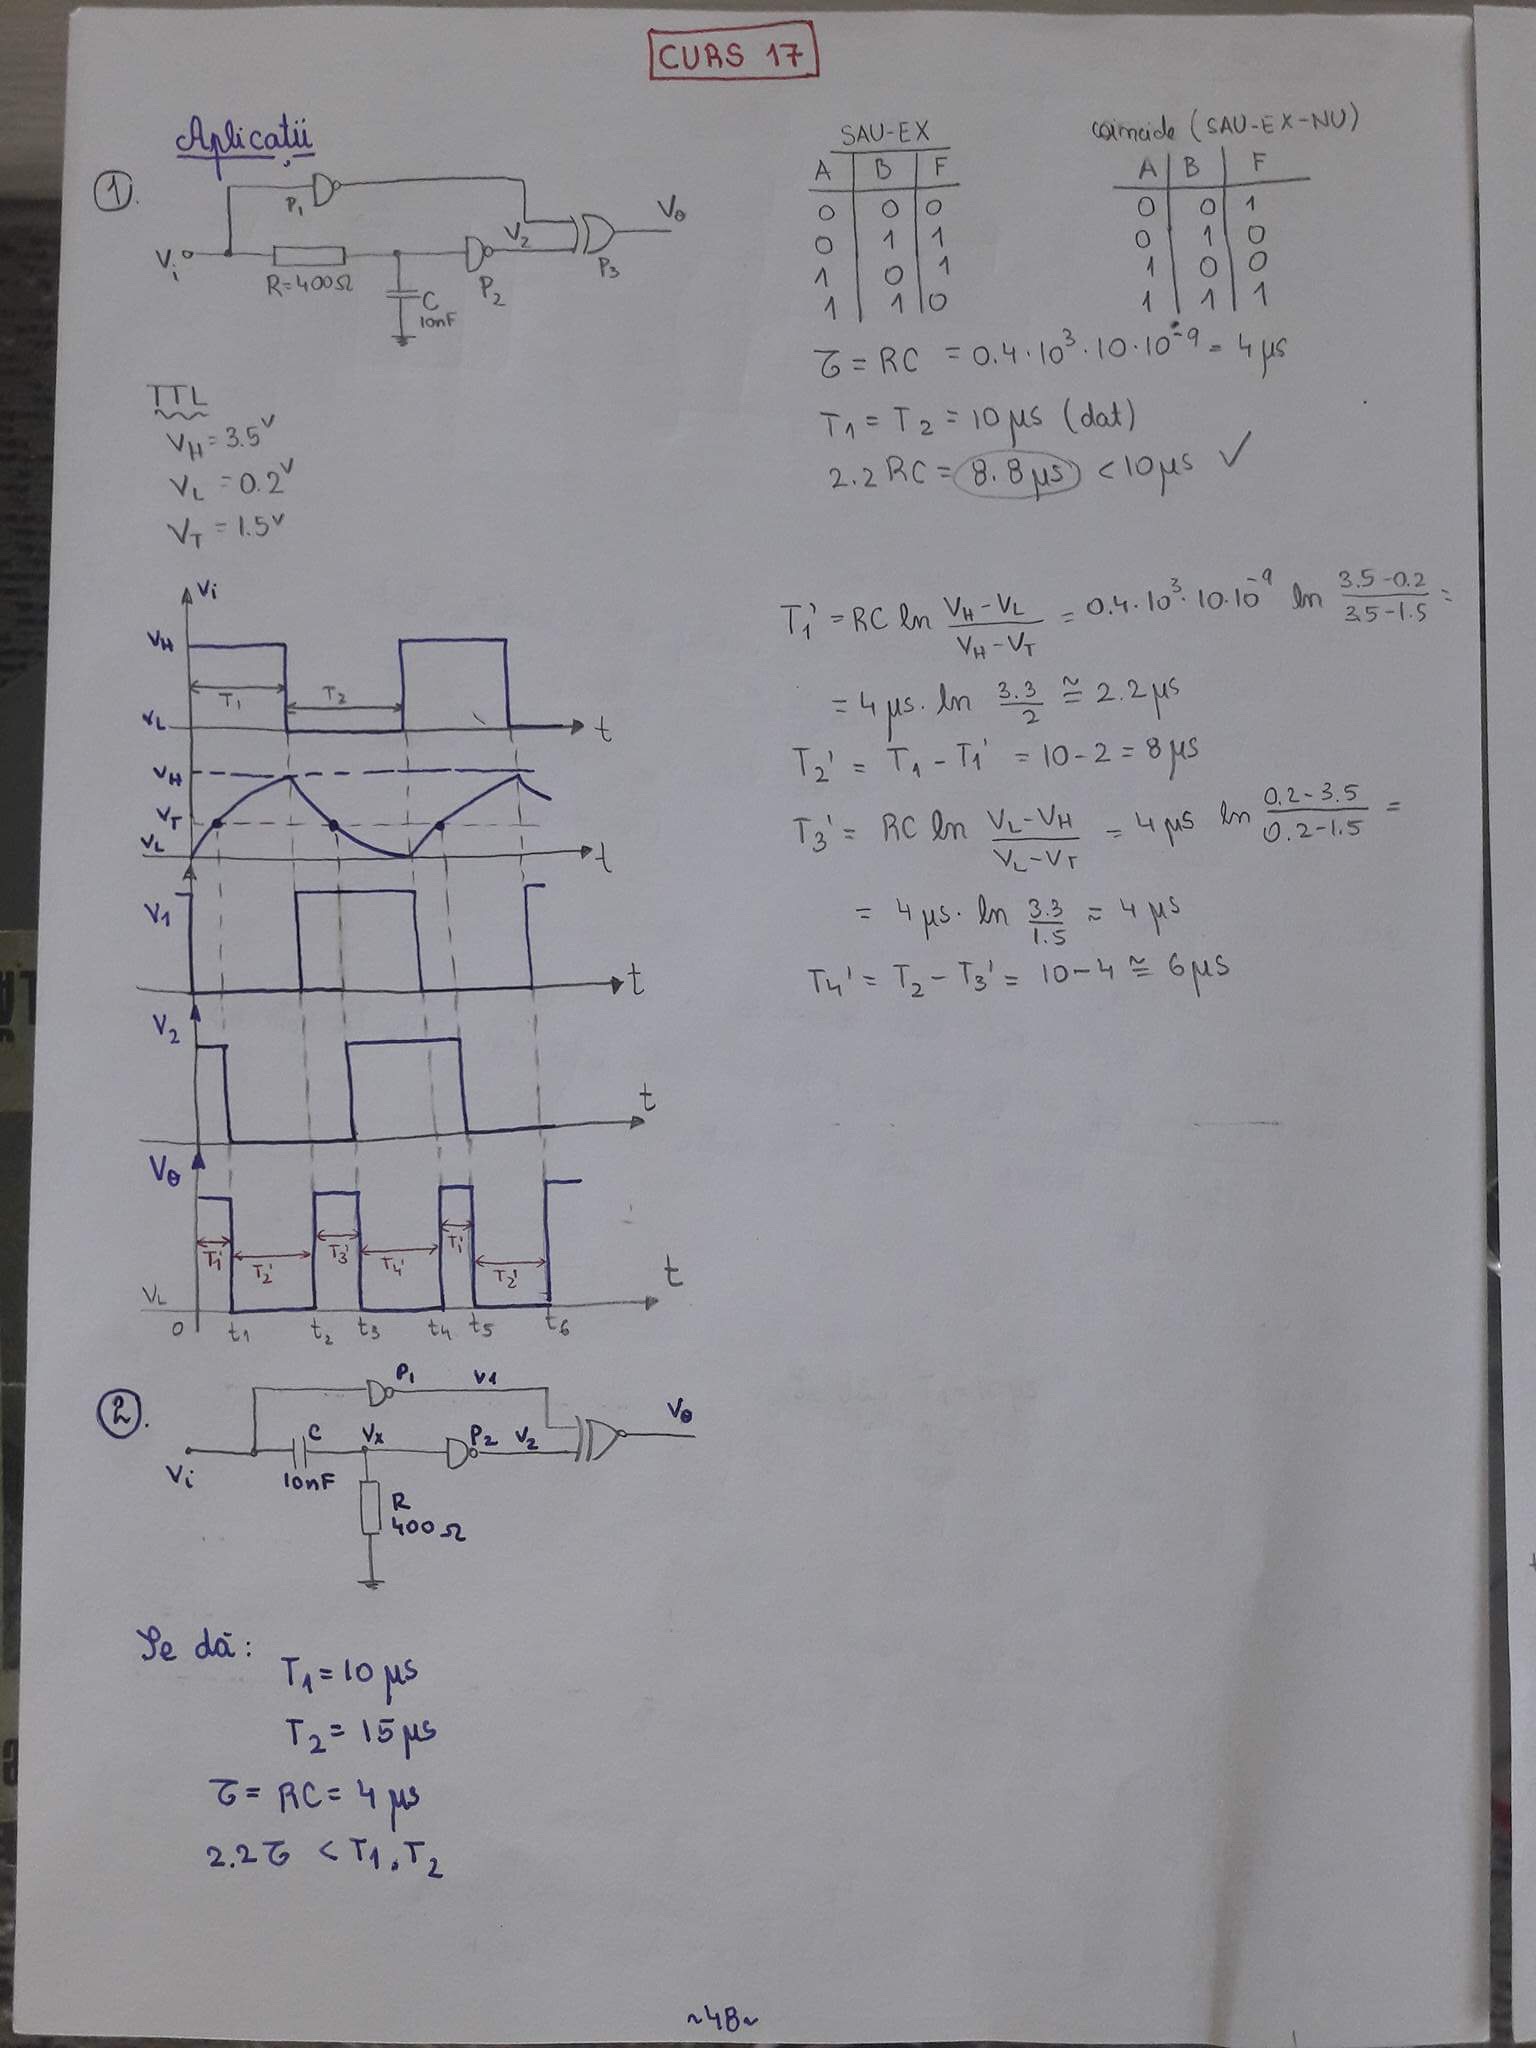 CURS 17
Aplicații
1.
P1
V2
Vo
P3
Vi
R=400Ω
C
10nF
P2
SAU-EX
A B F
0 0 0
0 1 1
1 0 1
1 1 0
coincide (SAU-EX-NU)
A B F
0 0 1
0 1 0
1 0 0
1 1 1
TTL
VH = 3.5V
VL = 0.2V
VT = 1.5V
τ = RC = 0.4·10³·10·10⁻⁹ = 4μs
T1 = T2 = 10μs (dat)
2.2RC = 8.8μs < 10μs ✓
T1' = RC ln (VH-VL)/(VH-VT) = 0.4·10³·10·10⁻⁹ ln (3.5-0.2)/(3.5-1.5) =
= 4μs· ln 3.3/2 ≅ 2.2μs
T2' = T1 - T1' = 10-2 = 8μs
T3' = RC ln (VL-VH)/(VL-VT) = 4μs ln (0.2-3.5)/(0.2-1.5) =
= 4μs· ln 3.3/1.5 ≈ 4μs
T4' = T2 - T3' = 10-4 ≅ 6μs
Vi
VH
T1 T2
VL t
VH
VT
VL t
V1
t
V2
t
Vo
T1' T2' T3' T4' T1' T2'
VL t
0 t1 t2 t3 t4 t5 t6
2.
P1 V1
Vo
C Vx P2 V2
Vi
10nF
R
400Ω
Se dă:
T1 = 10μs
T2 = 15μs
τ = RC = 4μs
2.2τ < T1, T2
~48~